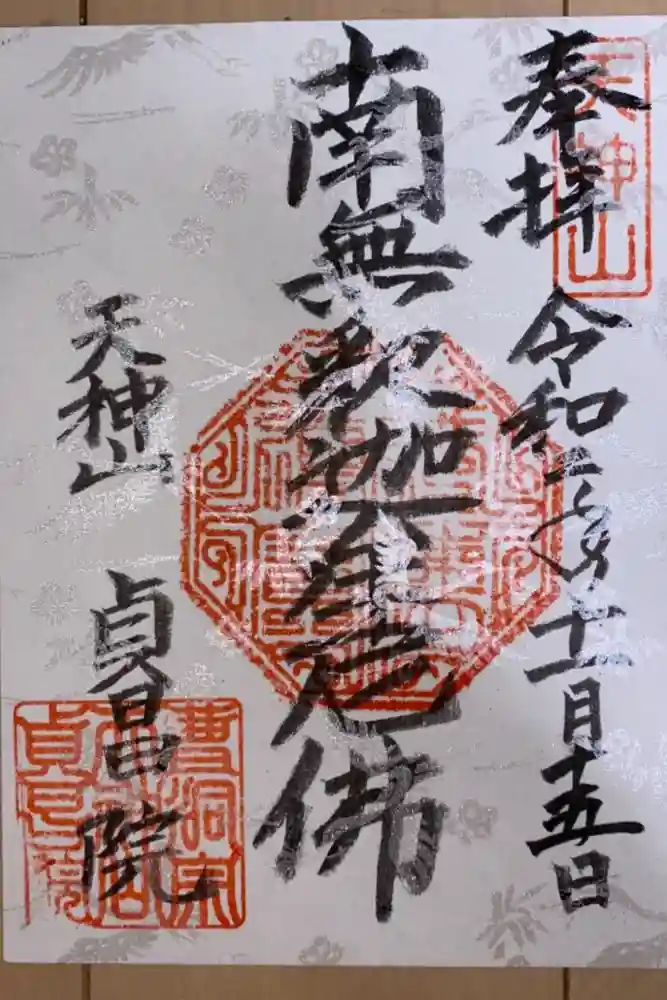 奉拝 令和二年十一月十五日
天神山
南無釈迦牟尼佛
天神山 貞昌院
曹洞宗
天神山
貞昌院